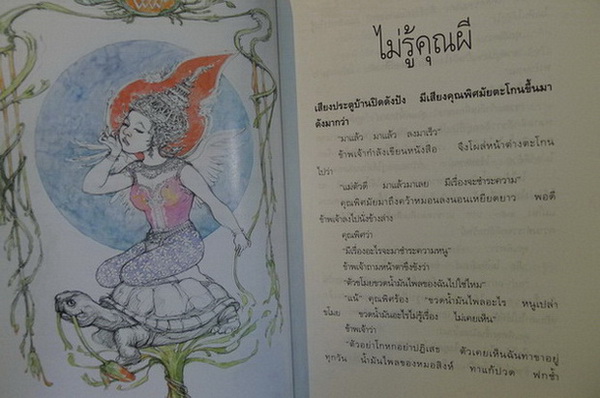 ไม่รู้คุณผี
เสียงประตูบ้านปิดดังปัง มีเสียงคุณพิศมัยตะโกนขึ้นมา
ดังมากว่า
"มาแล้ว มาแล้ว ลงมาเร็ว"
ข้าพเจ้ากำลังเขียนหนังสือ จึงโผล่หน้าต่างตะโกน
ไปว่า
"แม่ตัวดี มาแล้วมาเลย มีเรื่องจะชำระความ"
คุณพิศมัยมาถึงคว้าหมอนลงนอนเหยียดยาว พอดี
ข้าพเจ้าลงไปนั่งข้างล่าง
คุณพิศว่า
"มีเรื่องอะไรจะมาชำระความหนู"
ข้าพเจ้าถามหน้าตาขึงขังว่า
"ตัวขโมยขวดน้ำมันไพลของฉันไปใช่ไหม"
"แน้" คุณพิศร้อง "ขวดน้ำมันไพลอะไร หนูเปล่า
ขโมย ขวดน้ำมันอะไรไม่รู้เรื่อง ไม่เคยเห็น"
ข้าพเจ้าว่า
"ตัวอย่าโกหกอย่าปฏิเสธ ตัวเคยเห็นฉันทาขาอยู่
ทุกวัน น้ำมันไพลของหมอสิงห์ ทาแก้ปวด ฟกช้ำ